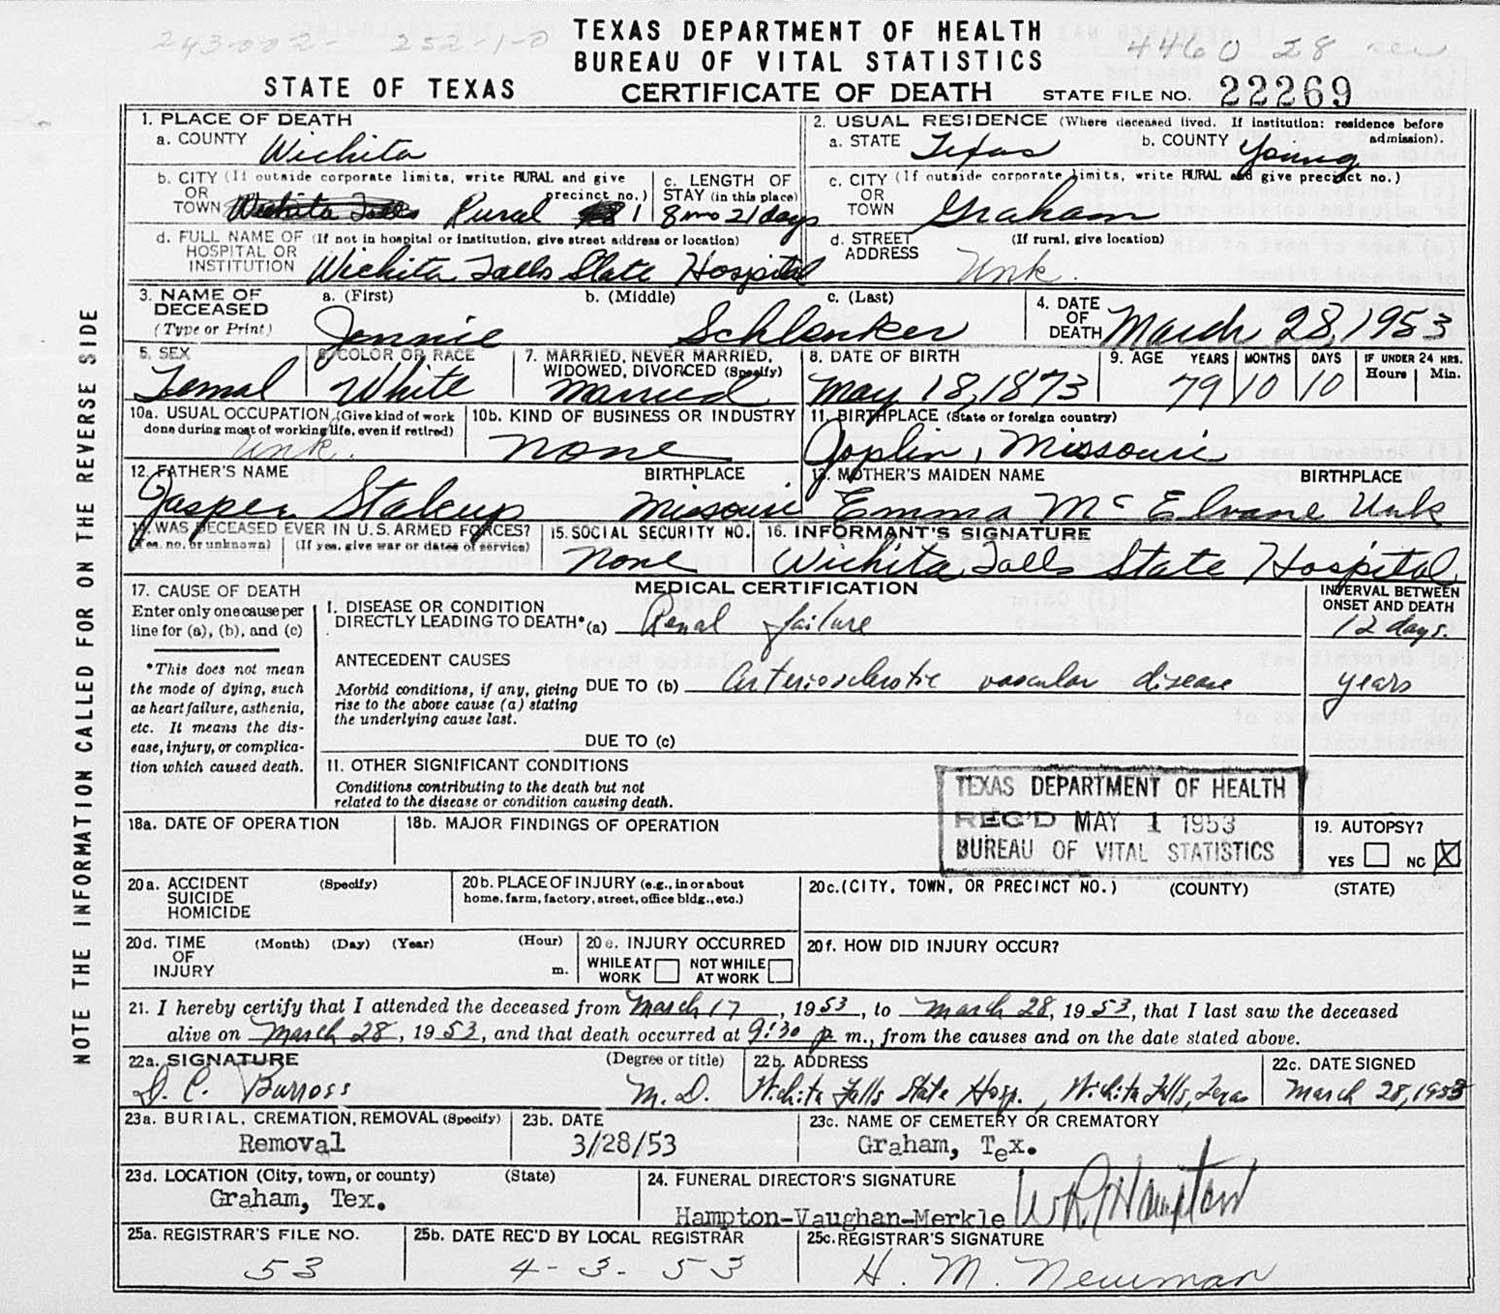 243-002- 252-1-0
TEXAS DEPARTMENT OF HEALTH
BUREAU OF VITAL STATISTICS
4460 28
STATE OF TEXAS CERTIFICATE OF DEATH STATE FILE NO. 22269
NOTE THE INFORMATION CALLED FOR ON THE REVERSE SIDE
1. PLACE OF DEATH
a. COUNTY Wichita
2. USUAL RESIDENCE (Where deceased lived. If institution: residence before admission).
a. STATE Texas b. COUNTY Young
b. CITY (If outside corporate limits, write RURAL and give precinct no.)
OR
TOWN Wichita Falls Rural 1
c. LENGTH OF
STAY (in this place)
8 mo 21 days
c. CITY (If outside corporate limits, write RURAL and give precinct no.)
OR
TOWN Graham
d. FULL NAME OF (If not in hospital or institution, give street address or location)
HOSPITAL OR
INSTITUTION Wichita Falls State Hospital
d. STREET (If rural, give location)
ADDRESS Unk.
3. NAME OF DECEASED (Type or Print)
a. (First) b. (Middle) c. (Last)
Jennie Schlenker
4. DATE OF DEATH March 28, 1953
5. SEX
Femal
6. COLOR OR RACE
White
7. MARRIED, NEVER MARRIED,
WIDOWED, DIVORCED (Specify)
Married
8. DATE OF BIRTH
May 18, 1873
9. AGE YEARS MONTHS DAYS IF UNDER 24 HRS. Hours Min.
79 10 10
10a. USUAL OCCUPATION (Give kind of work
done during most of working life, even if retired)
Unk.
10b. KIND OF BUSINESS OR INDUSTRY
none
11. BIRTHPLACE (State or foreign country)
Joplin, Missouri
12. FATHER'S NAME BIRTHPLACE
Jasper Stalcup Missouri
13. MOTHER'S MAIDEN NAME BIRTHPLACE
Emma McElvane Unk
14. WAS DECEASED EVER IN U.S. ARMED FORCES?
(Yes, no, or unknown) (If yes, give war or dates of service)
15. SOCIAL SECURITY NO.
None
16. INFORMANT'S SIGNATURE
Wichita Falls State Hospital
17. CAUSE OF DEATH
Enter only one cause per
line for (a), (b), and (c)
*This does not mean
the mode of dying, such
as heart failure, asthenia,
etc. It means the dis-
ease, injury, or complica-
tion which caused death.
MEDICAL CERTIFICATION
INTERVAL BETWEEN
ONSET AND DEATH
I. DISEASE OR CONDITION
DIRECTLY LEADING TO DEATH* (a) Renal failure 12 days.
ANTECEDENT CAUSES
Morbid conditions, if any, giving
rise to the above cause (a) stating
the underlying cause last.
DUE TO (b) arteriosclerotic vascular disease years
DUE TO (c)
II. OTHER SIGNIFICANT CONDITIONS
Conditions contributing to the death but not
related to the disease or condition causing death.
TEXAS DEPARTMENT OF HEALTH
REC'D MAY 1 1953
BUREAU OF VITAL STATISTICS
18a. DATE OF OPERATION 18b. MAJOR FINDINGS OF OPERATION
19. AUTOPSY?
YES NO
20a. ACCIDENT (Specify)
SUICIDE
HOMICIDE
20b. PLACE OF INJURY (e.g., in or about
home, farm, factory, street, office bldg., etc.)
20c. (CITY, TOWN, OR PRECINCT NO.) (COUNTY) (STATE)
20d. TIME (Month) (Day) (Year) (Hour)
OF
INJURY m.
20e. INJURY OCCURRED
WHILE AT WORK NOT WHILE AT WORK
20f. HOW DID INJURY OCCUR?
21. I hereby certify that I attended the deceased from March 17, 1953, to March 28, 1953, that I last saw the deceased
alive on March 28, 1953, and that death occurred at 9:30 p m., from the causes and on the date stated above.
22a. SIGNATURE (Degree or title)
D. C. Burross M.D.
22b. ADDRESS
Wichita Falls State Hosp., Wichita Falls, Texas
22c. DATE SIGNED
March 28, 1953
23a. BURIAL, CREMATION, REMOVAL (Specify)
Removal
23b. DATE
3/28/53
23c. NAME OF CEMETERY OR CREMATORY
Graham, Tex.
23d. LOCATION (City, town, or county) (State)
Graham, Tex.
24. FUNERAL DIRECTOR'S SIGNATURE
Hampton-Vaughan-Merkle W R Hampton
25a. REGISTRAR'S FILE NO.
53
25b. DATE REC'D BY LOCAL REGISTRAR
4-3-53
25c. REGISTRAR'S SIGNATURE
H. M. Newman